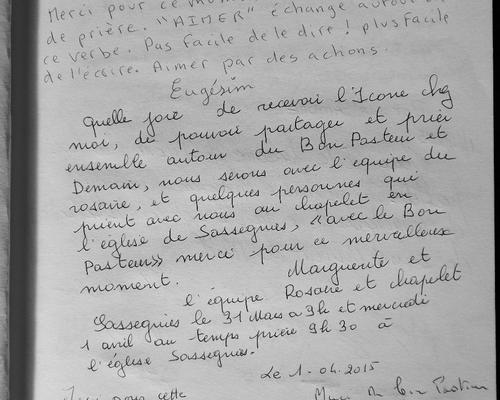 Merci pour ce mom
de prière. "AIMER" échange autour
ce verbe. Pas facile de le dire ! plus facile
de l'écrire. Aimer par des actions.
Eugésim
Quelle joie de recevoir l'Icone chez
moi, de pouvoir partager et prier
ensemble autour du Bon Pasteur et
Demain, nous serons avec l'équipe du
rosaire, et quelques personnes qui
prient avec nous au chapelet en
l'église de Sassegnies, «avec le Bon
Pasteur» merci pour ce merveilleux
moment.
Marguerite et
l'équipe Rosaire et chapelet
Sassegnies le 31 Mars a 9h et mercredi
1 avril au temps prière 9h 30 à
l'église Sassegnies.
Le 1-04.2015
pour cette